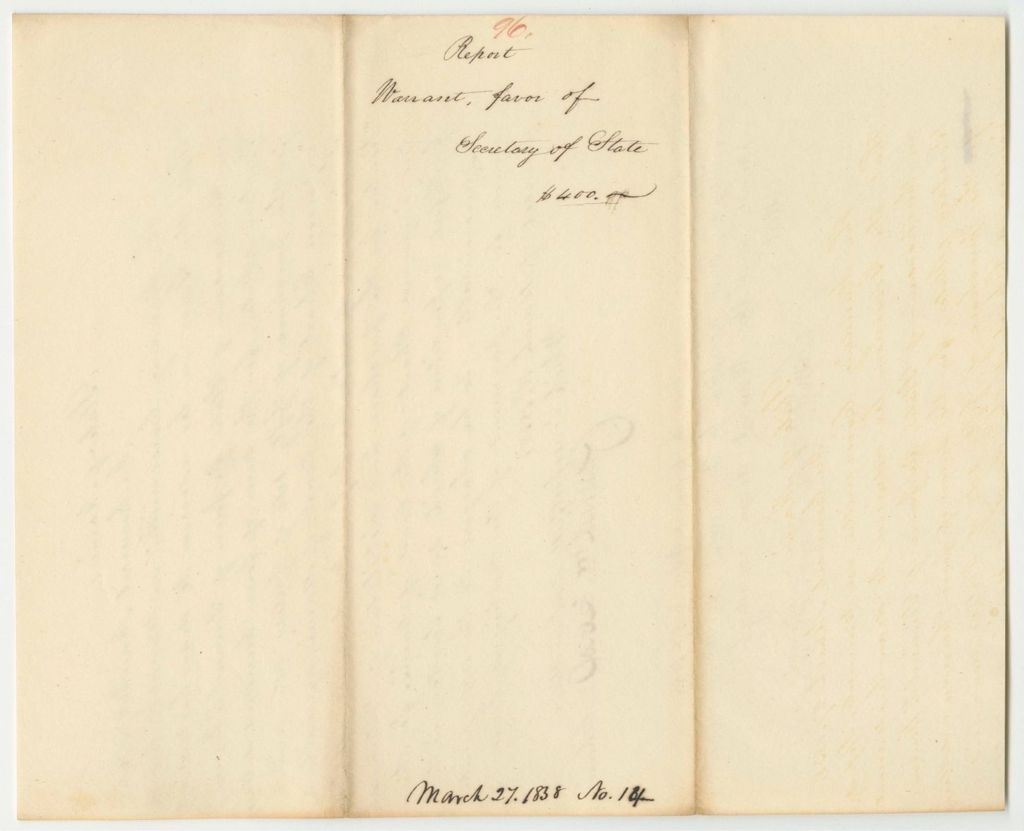 96.
Report
Warrant, favor of
Secretary of State
$400.00
March 27. 1838 No. 14